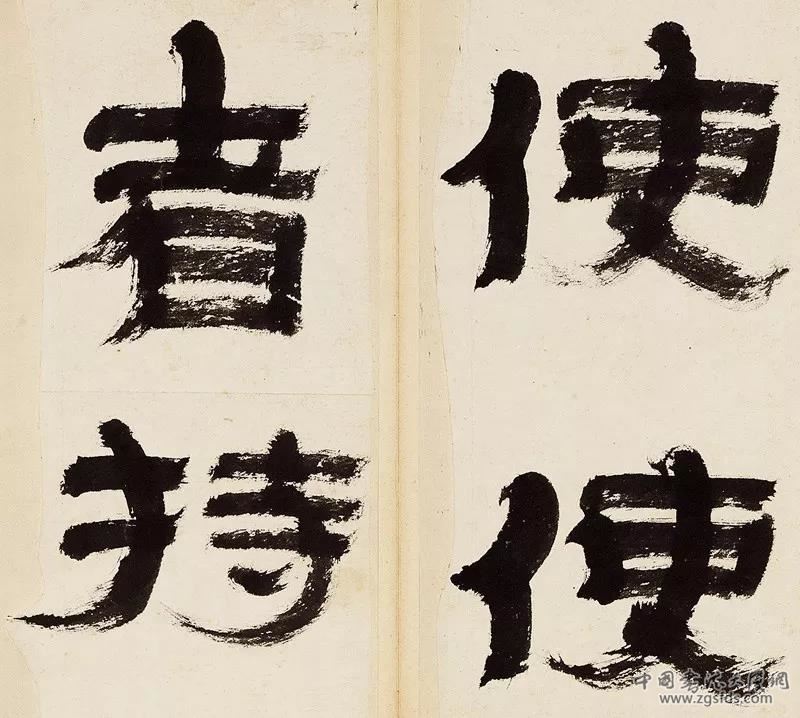 使使
者持
中国书法在线网
www.zgsfds.com